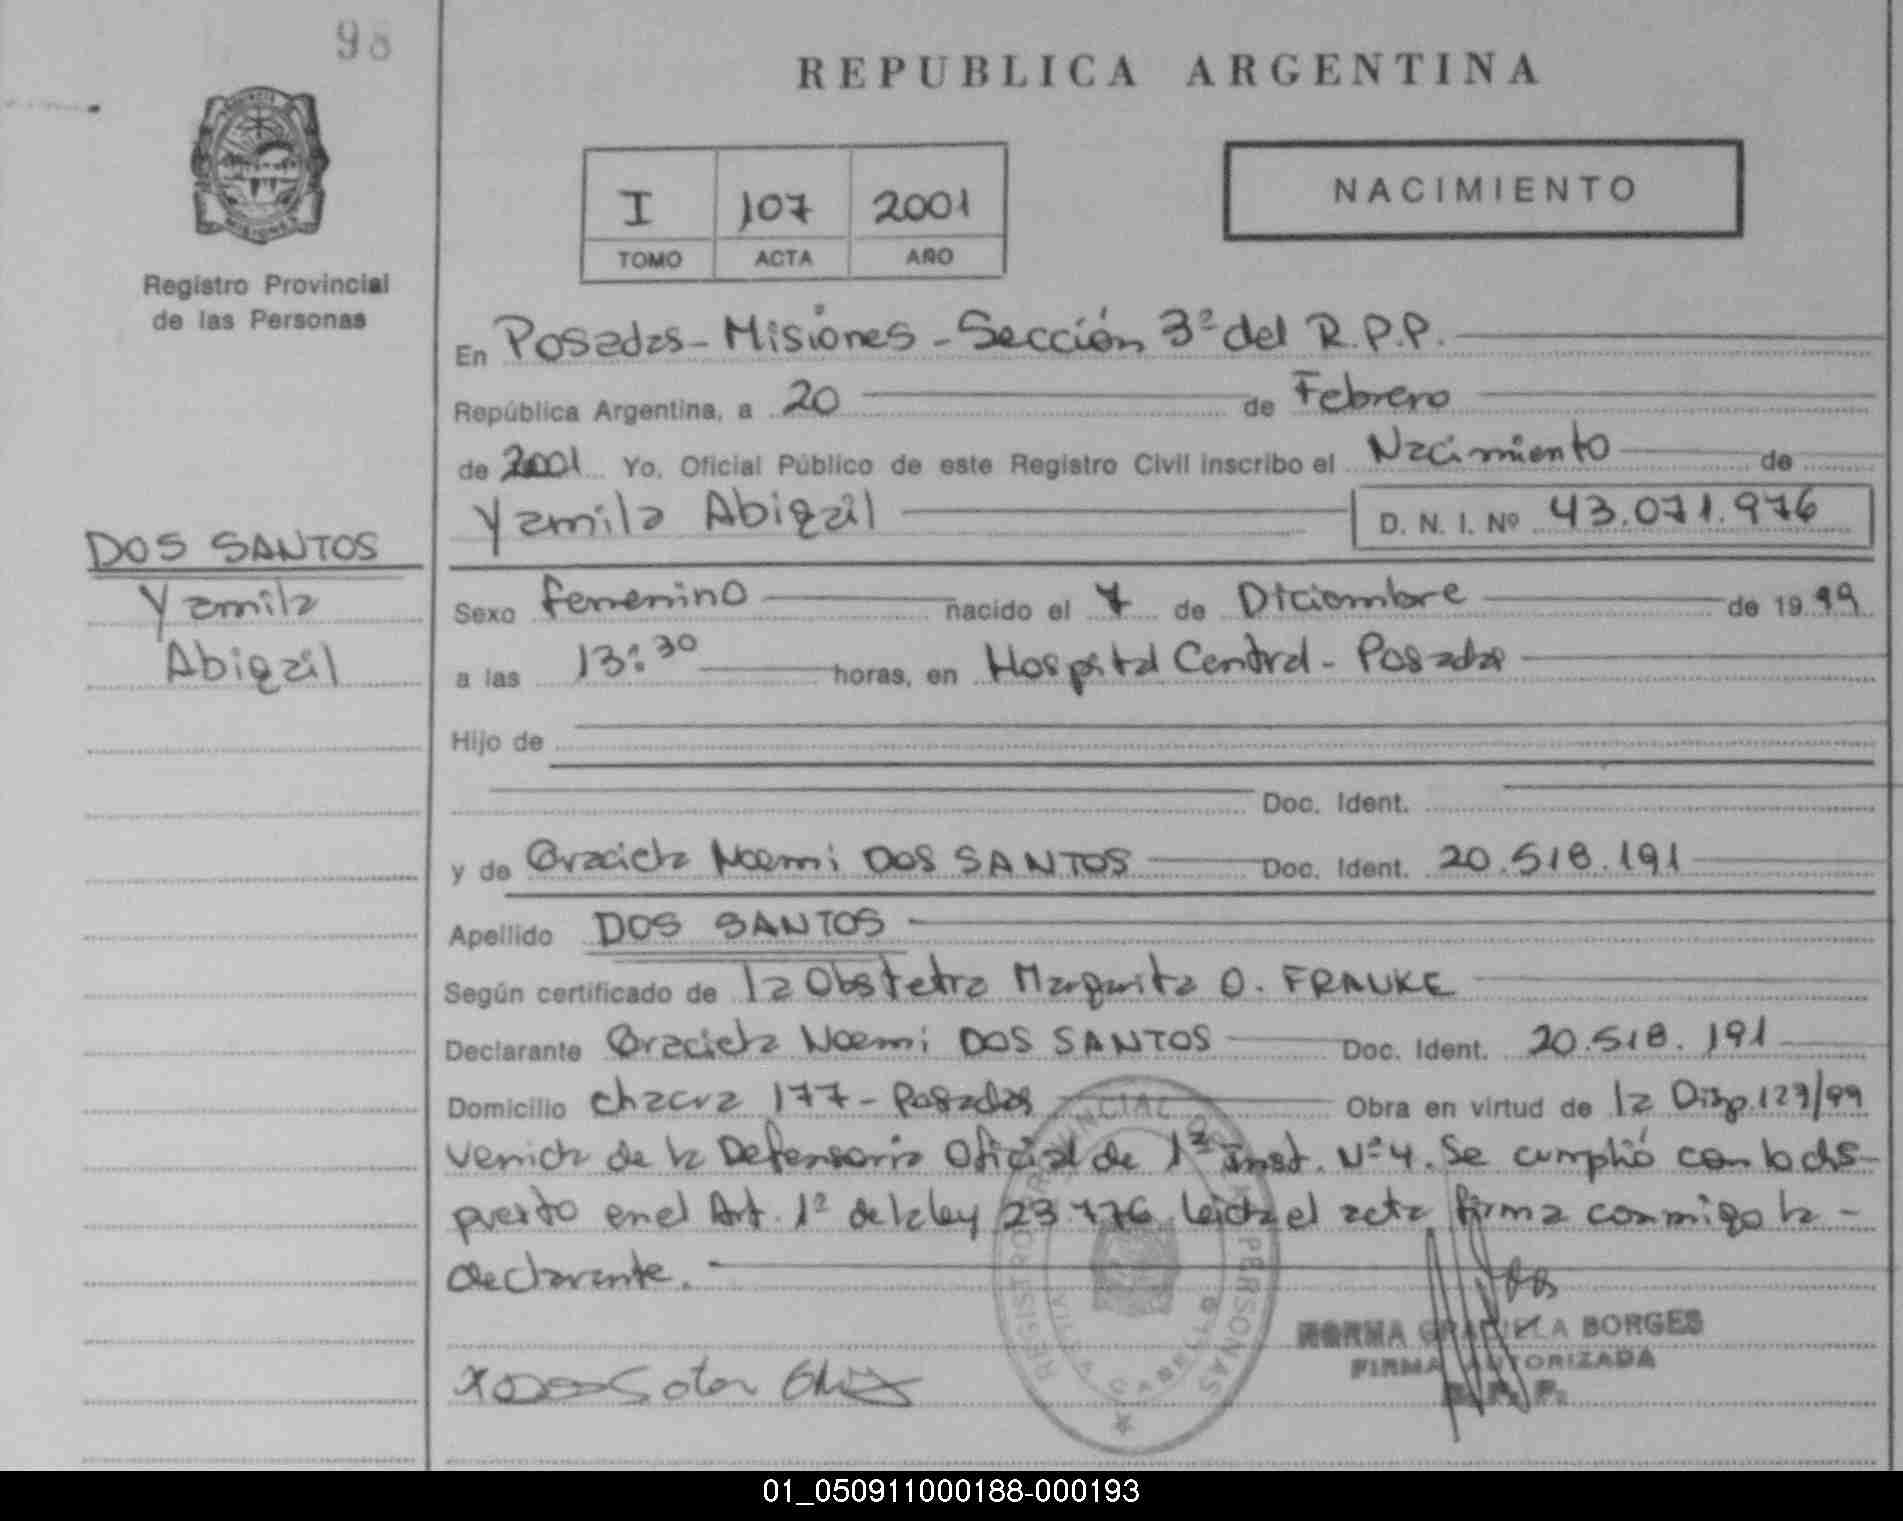 98
REPUBLICA ARGENTINA
I 107 2001
TOMO ACTA AÑO
NACIMIENTO
Registro Provincial
de las Personas
En Posadas - Misiones - Sección 3ª del R.P.P.
República Argentina, a 20 de Febrero
de 2001 Yo, Oficial Público de este Registro Civil inscribo el Nacimiento de
Yamila Abigail D. N. I. Nº 43.071.976
DOS SANTOS
Yamila
Abigail
Sexo femenino nacido el 7 de Diciembre de 1999
a las 13:30 horas, en Hospital Central - Posadas
Hijo de
Doc. Ident.
y de Graciela Noemi DOS SANTOS Doc. Ident. 20.518.191
Apellido DOS SANTOS
Según certificado de la Obstetra Margarita O. FRANKE
Declarante Graciela Noemi DOS SANTOS Doc. Ident. 20.518.191
Domicilio chacra 177 - Posadas Obra en virtud de la Disp. 127/99
venida de la Defensoria Oficial de 1ª inst. Nº 4. Se cumplió con lo dis-
puesto en el Art. 1º de la ley 23.776 Leida el acta firma conmigo la -
declarante.
REGISTRO PROVINCIAL DE LAS PERSONAS
VILLA CABELLO
NORMA GRACIELA BORGES
FIRMA AUTORIZADA
R. P. P.
01_050911000188-000193